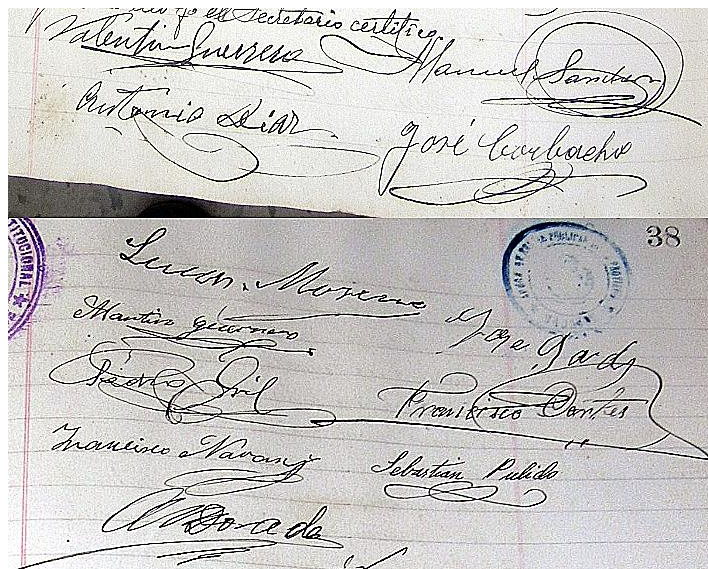 y el Secretario certifico
Valentin Guerrero Manuel Sanchez
Antonio Diaz José Corbacho
38
TITUCIONAL
Lucas Moreno
Martin guerrero Jose
Pedro Gil Francisco Cortes
Francisco Navarro Sebastian Pulido
Dorado